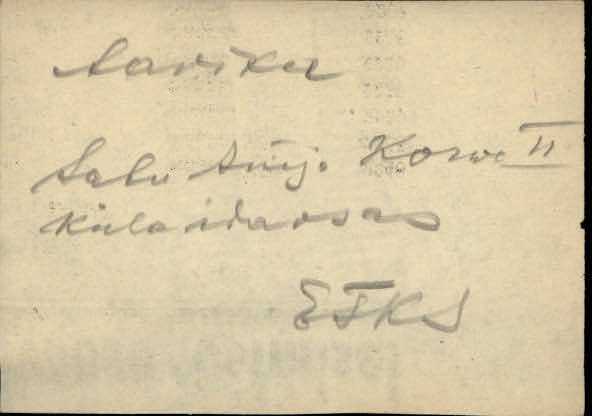 Aariku
Salu Anij. Korve II
küla idaosas
ETKS